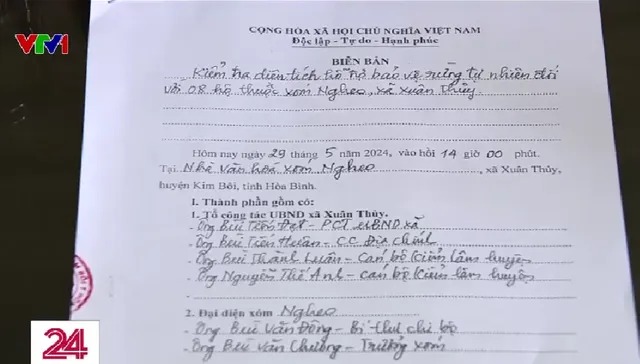 VTV1
CỘNG HÒA XÃ HỘI CHỦ NGHĨA VIỆT NAM
Độc lập - Tự do - Hạnh phúc
BIÊN BẢN
Kiểm tra diện tích hỗ trợ bảo vệ rừng tự nhiên đối
với 08 hộ thuộc xóm Nghẹo, xã Xuân Thủy.
Hôm nay ngày 29 tháng 5 năm 2024, vào hồi 14 giờ 00 phút.
Tại Nhà văn hoá xóm Nghẹo, xã Xuân Thủy,
huyện Kim Bôi, tỉnh Hòa Bình.
I. Thành phần gồm có:
1. Tổ công tác UBND xã Xuân Thủy.
- Ông Bùi Tiến Đạt - PCT UBND xã
- Ông Bùi Tiến Huân - CC Địa chính
- Ông Bùi Thanh Luân - Cán bộ Kiểm lâm huyện
- Ông Nguyễn Thế Anh - cán bộ Kiểm lâm huyện
2. Đại diện xóm Nghẹo
- Ông Bùi Văn Đông - Bí thư chi bộ
- Ông Bùi Văn Chưởng - Trưởng xóm
24